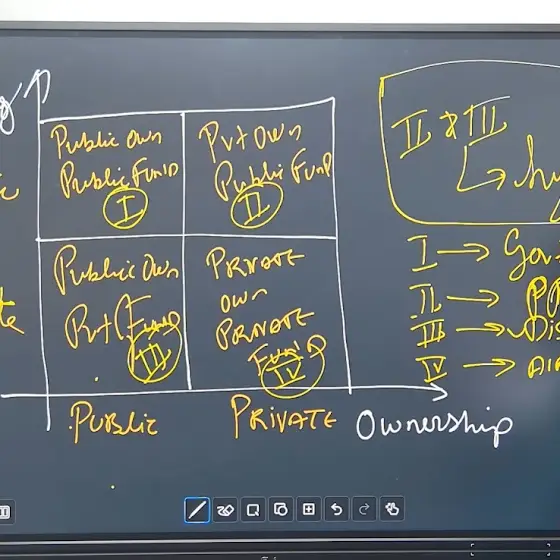 Public Own
Public Fund
I
Pvt Own
Public Fund
II
Public Own
Pvt Fund
III
PRIVATE
own
PRIVATE
Fund
IV
Public
PRIVATE
Ownership
II & III
I → Gov
II → PP
III → Dis
IV →